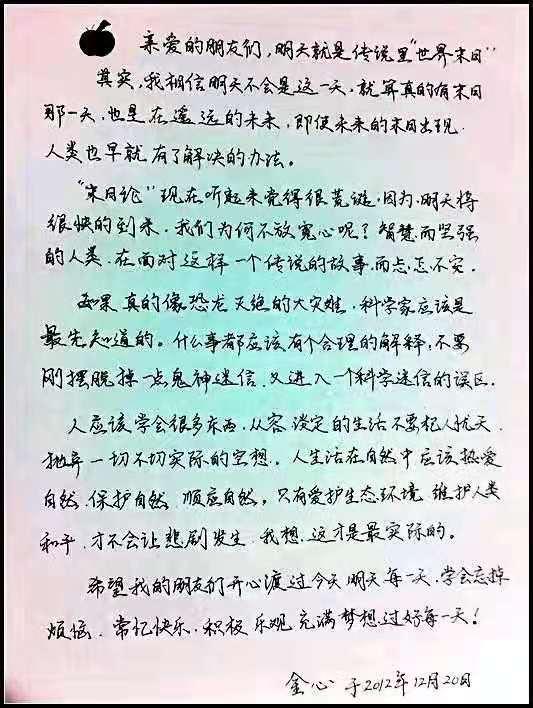 亲爱的朋友们，明天就是传说里"世界末日"
其实，我相信明天不会是这一天，就算真的有末日
那一天，也是在遥远的未来，即使未来的末日出现.
人类也早就有了解决的办法。
"末日论"现在听起来觉得很荒诞，因为，明天将
很快的到来，我们为何不放宽心呢？智慧而坚强
的人类，在面对这样一个传说的故事，而忐忑不安.
如果真的像恐龙灭绝的大灾难，科学家应该是
最先知道的。什么事都应该有个合理的解释，不要
刚摆脱掉一点鬼神迷信，又进入一个科学迷信的误区.
人应该学会很多东西，从容淡定的生活不要杞人忧天.
抛弃一切不切实际的空想。人生活在自然中应该热爱
自然.保护自然.顺应自然。只有爱护生态环境.维护人类
和平.才不会让悲剧发生.我想.这才是最实际的。
希望我的朋友们开心渡过今天明天每一天.学会忘掉
烦恼.常忆快乐.积极乐观充满梦想过好每一天！
金心 于2012年12月20日